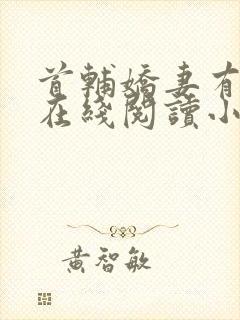 首輔嬌妻有
在綫閱讀小
黃智敏